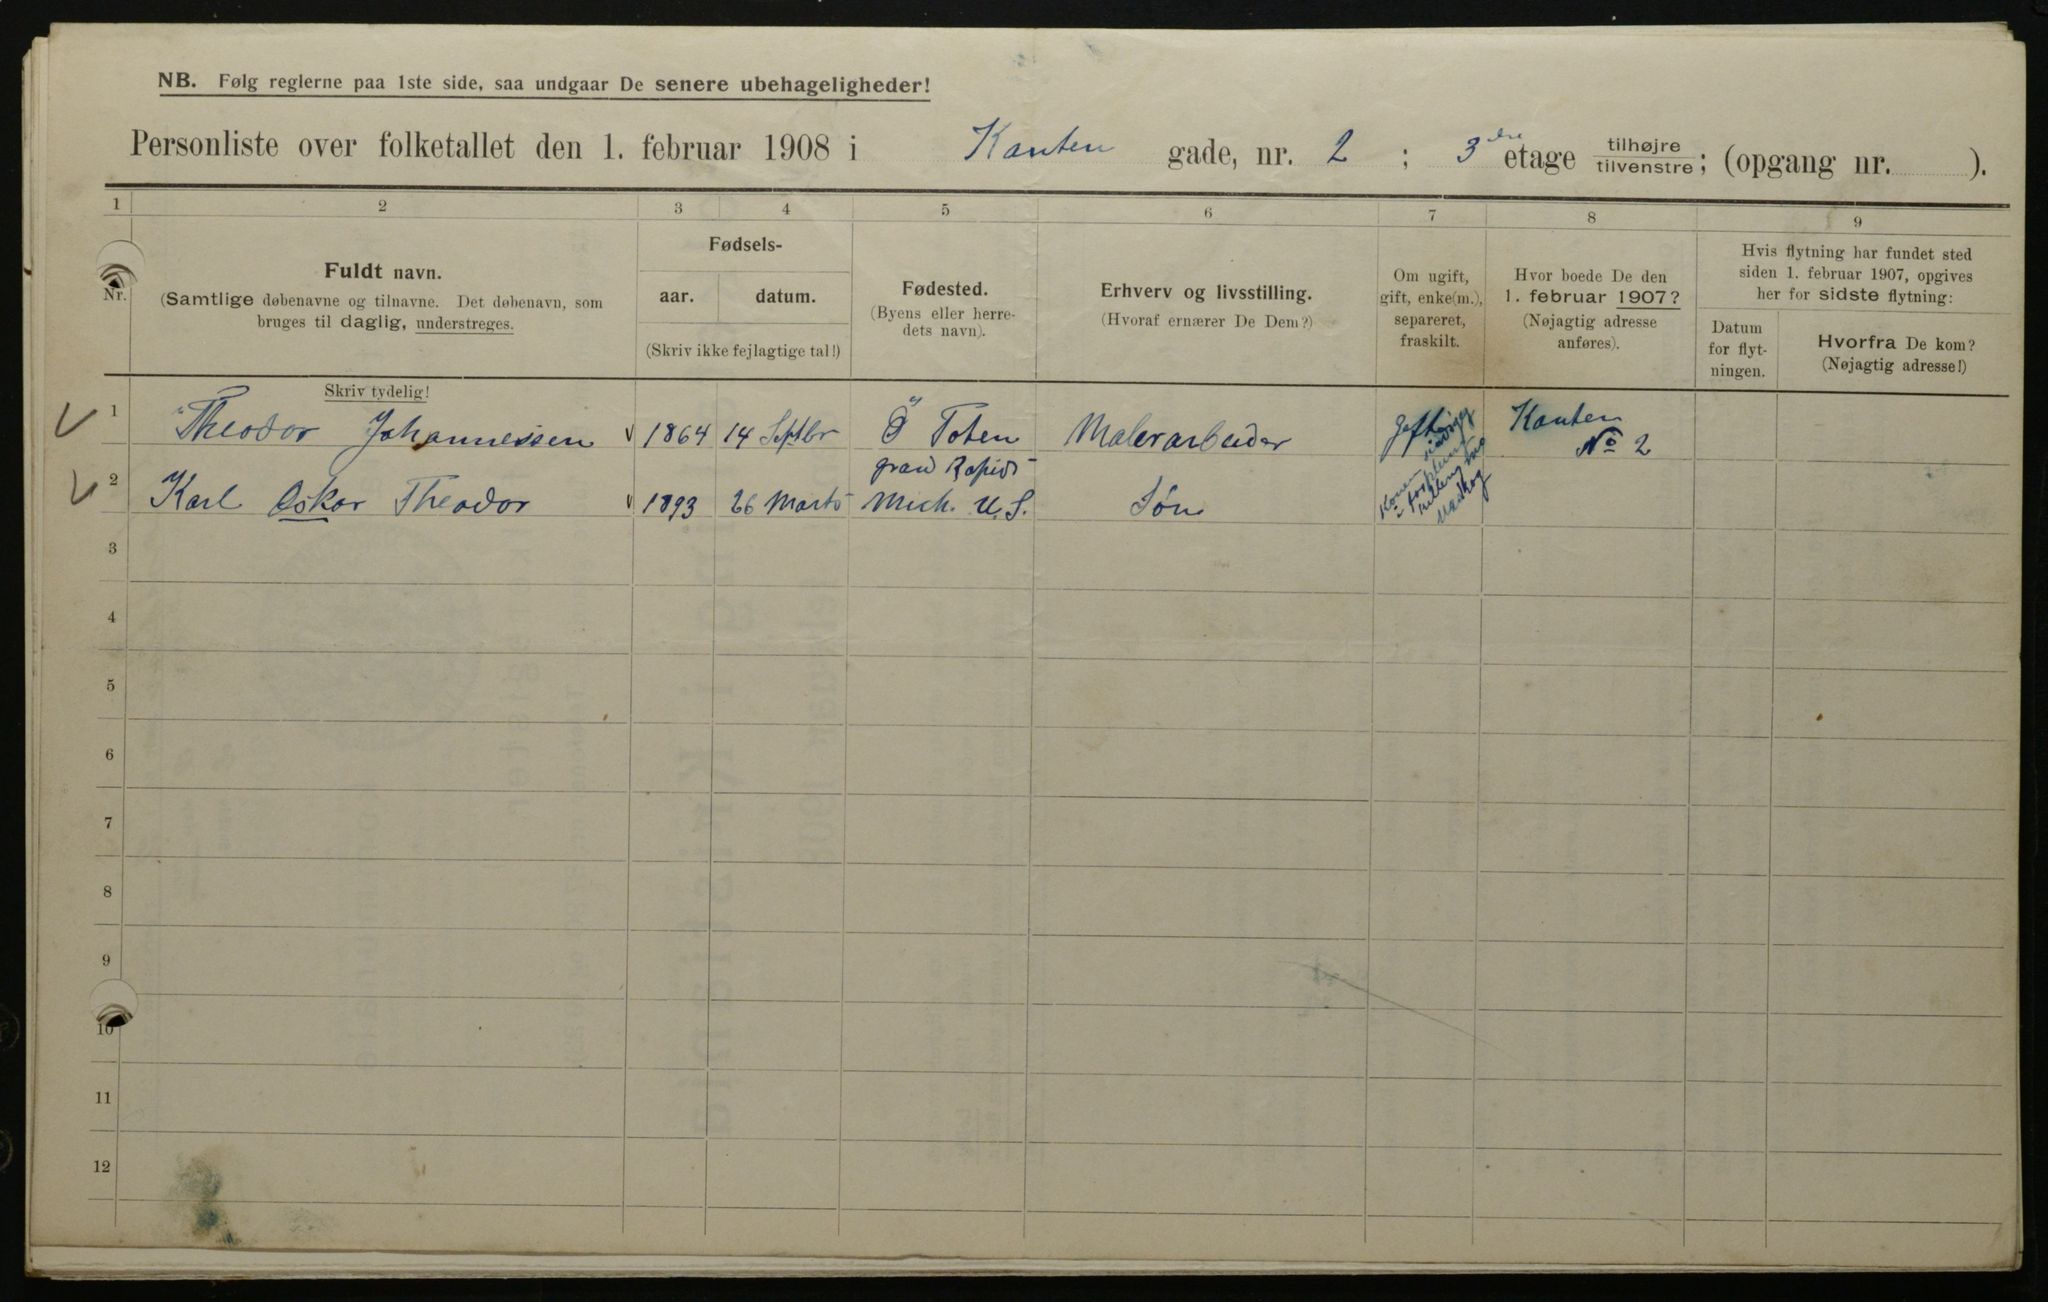 NB. Følg reglerne paa 1ste side, saa undgaar De senere ubehageligheder!
Personliste over folketallet den 1. februar 1908 i Kanten gade, nr. 2 ; 3dre etage tilhøjre tilvenstre; (opgang nr. ).
1 2 3 4 5 6 7 8 9
Nr.
Fuldt navn.
(Samtlige døbenavne og tilnavne. Det døbenavn, som
bruges til daglig, understreges.
Skriv tydelig!
Fødsels-
aar. datum.
(Skriv ikke fejlagtige tal!)
Fødested.
(Byens eller herre-
dets navn).
Erhverv og livsstilling.
(Hvoraf ernærer De Dem?)
Om ugift,
gift, enke(m.),
separeret,
fraskilt.
Hvor boede De den
1. februar 1907?
(Nøjagtig adresse
anføres).
Hvis flytning har fundet sted
siden 1. februar 1907, opgives
her for sidste flytning:
Datum
for flyt-
ningen.
Hvorfra De kom?
(Nøjagtig adresse!)
1 Theodor Johannessen 1864 14 Septbr Ø Toten Malerarbeider Gift Kanten
No 2
2 Karl Oskar Theodor 1893 26 Marts Grand Rapids
Mich. U. S. Søn
3
4
5
6
7
8
9
10
11
12